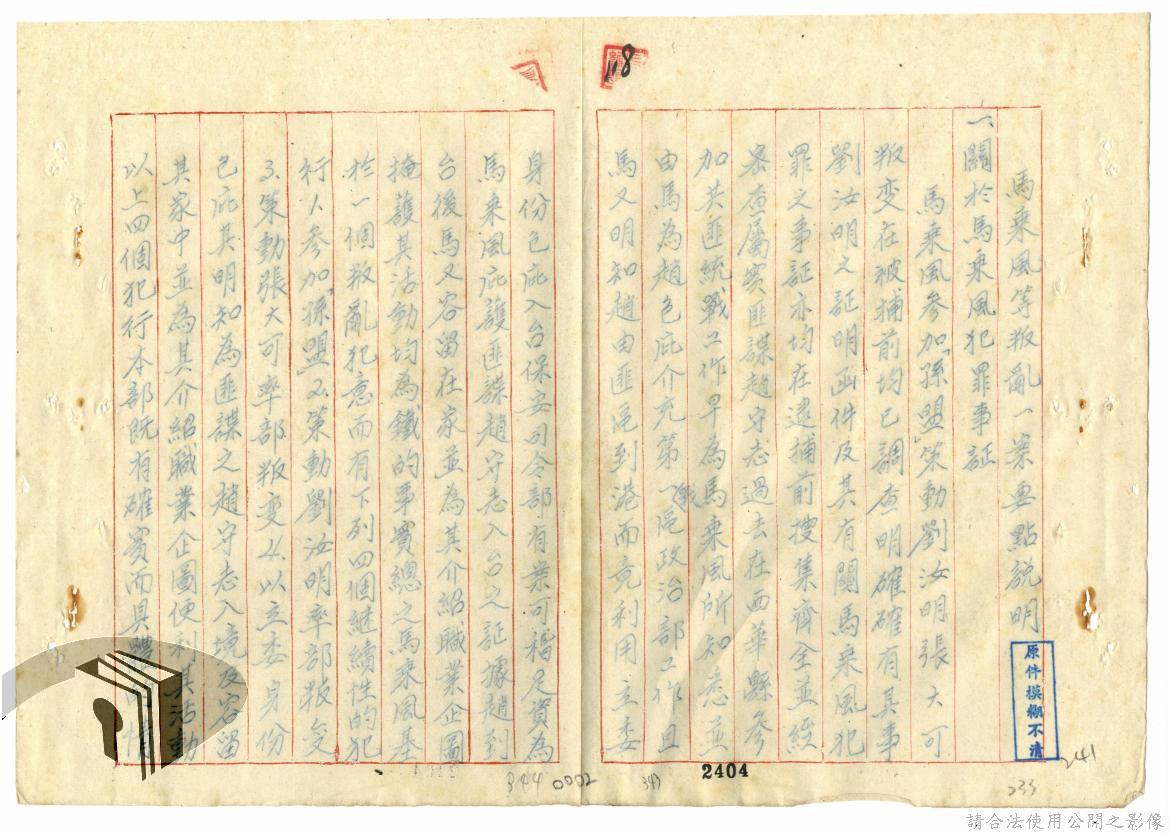 馬乘風等叛亂一案要點說明
一、關於馬乘風犯罪事証
馬乘風參加「孫盟」策動劉汝明張大可
叛变在被捕前均已調查明確確有其事
劉汝明之証明函件及其有關馬乘風犯
罪之事証亦均在逮捕前搜集齊全並經
查屬實匪諜趙守志過去在西華縣參
加共匪統戰工作早為馬乘風所知悉並
由馬為趙包庇介充第一戰區政治部工作且
馬又明知趙由匪區到港而竟利用立委
身份包庇入台保安司令部有案可稽足資為
馬乘風庇護匪諜趙守志入台之証據趙到
台後馬又容留在家並為其介紹職業企圖
掩護其活動均為鐵的事實總之馬乘風基
於一個叛亂犯意而有下列四個继續性的犯
行1.參加「孫盟」2.策動劉汝明率部叛变
3.策動張大可率部叛变4.以立委身份
包庇其明知為匪諜之趙守志入境及容留
其家中並為其介紹職業企圖便利其活動
以上四個犯行本部既有確實而具體
118
原件模糊不清
2404
344 0002
341
233
241
請合法使用公開之影像